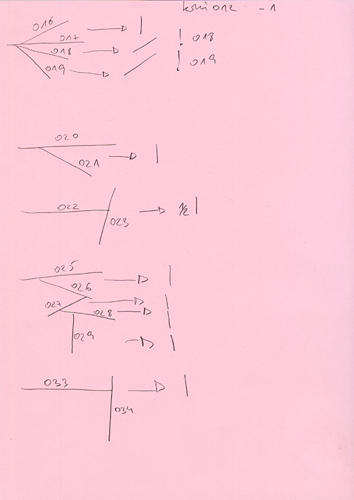 012 - 1
016
017
018 ! 018
019 ! 019
020
021
022
023
025
026
027
028
029
033
034